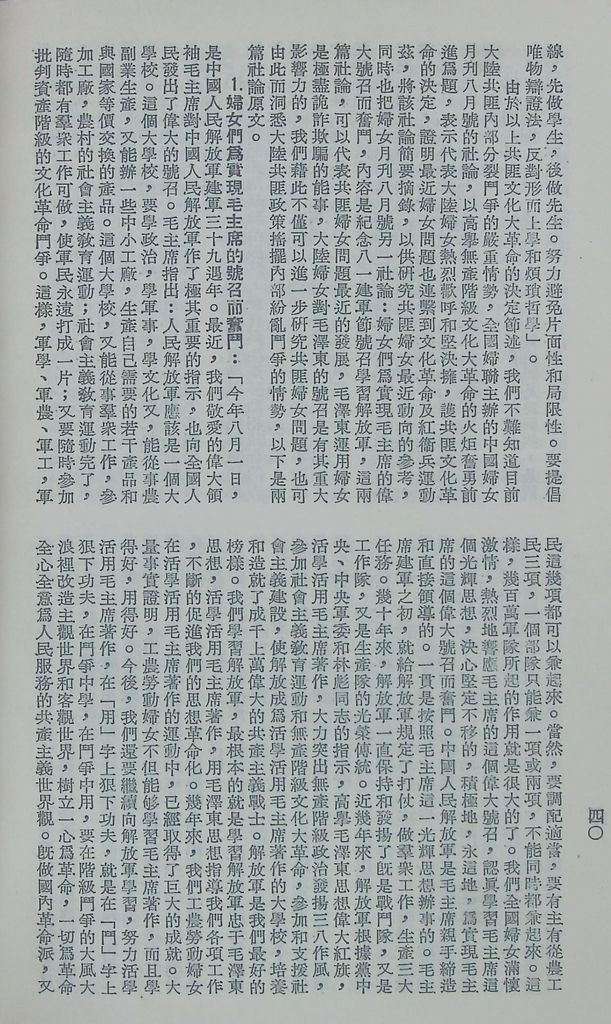 線，先做學生，後做先生。努力避免片面性和局限性。要提倡
唯物辯證法，反對形而上學和煩瑣哲學」。
由於以上共匪文化大革命的決定節述，我們不難知道目前
大陸共匪內部分裂鬥爭的嚴重情勢，全國婦聯主辦的中國婦女
月刊八月號的社論，以高擧無產階級文化大革命的火炬奮勇前
進爲題，表示代表大陸婦女熱烈歡呼和堅決擁，護共匪文化革
命的決定，證明最近婦女問題也連繫到文化革命及紅衞兵運動
茲，將該社論簡要摘錄，以供研究共匪婦女最近動向的參考，
同時也把婦女月刊八月號另一社論：婦女們爲實現毛主席的偉
大號召而奮鬥，內容是紀念八一建軍節號召學習解放軍，這兩
篇社論，可以代表共匪婦女問題最近的發展，毛澤東運用婦女
是極盡詭詐欺騙的能事，大陸婦女對毛澤東的號召是有其重大
影響力的，我們藉此不僅可以進一步研究共匪婦女問題，也可
由此而洞悉大陸共匪政策搖擺內部紛亂鬥爭的情勢，以下是兩
篇社論原文。
1.婦女們爲實現毛主席的號召而奮鬥：「今年八月一日，
是中國人民解放軍建軍三十九週年。最近，我們敬愛的偉大領
袖毛主席對中國人民解放軍作了極其重要的指示，也向全國人
民發出了偉大的號召。毛主席指出：人民解放軍應該是一個大
學校。這個大學校，要學政治，學軍事，學文化又，能從事農
副業生產，又能辦一些中小工廠，生產自己需要的若干產品和
與國家等價交換的產品。這個大學校，又能從事羣衆工作，參
加工廠，農村的社會主義敎育運動；社會主義敎育運動完了，
隨時都有羣衆工作可做，使軍民永遠打成一片；又要隨時參加
批判資產階級的文化革命鬥爭。這樣，軍學、軍農、軍工，軍
民這幾項都可以兼起來。當然，要調配適當，要有主有從農工
民三項，一個部隊只能兼一項或兩項，不能同時都兼起來。這
樣，幾百萬軍隊所起的作用就是很大的了。我們全國婦女滿懷
激情，熱烈地響應毛主席的這個偉大號召，認眞學習毛主席這
個光輝思想，決心堅定不移的，積極地，永這地，爲實現毛主
席的這個偉大號召而奮鬥。中國人民解放軍是毛主席親手締造
和直接領導的。一貫是按照毛主席這一光輝思想辦事的。毛主
席建軍之初，就給解放軍規定了打仗，做羣衆工作，生產三大
任務。幾十年來，解放軍一直保持和發揚了旣是戰鬥隊，又是
工作隊，又是生產隊的光榮傳統。近幾年來，解放軍根據黨中
央、中央軍委和林彪同志的指示，高擧毛澤東思想偉大紅旗，
活學活用毛主席著作，大力突出無產階級政治發揚三八作風，
參加社會主義敎育運動和無產階級文化大革命，參加和支援社
會主義建設，使解放成爲活學活用毛主席著作的大學校，培養
和造就了成千上萬偉大的共產主義戰士。解放軍是我們最好的
榜樣。我們學習解放軍，最根本的就是學習解放軍忠于毛澤東
思想，活學活用毛主席著作，用毛澤東思想指導我們各項工作
，不斷的促進我們的思想革命化。幾年來，我們工農勞動婦女
在活學活用毛主席著作的運動中，已經取得了巨大的成就。大
量事實證明，工農勞動婦女不但能够學習毛主席著作，而且學
得好，用得好。今後，我們還要繼續向解放軍學習，努力活學
活用毛主席著作，在「用」字上狠下功夫，就是在「鬥」字上
狠下功夫，在鬥爭中學，在鬥爭中用，要在階級鬥爭的大風大
浪裡改造主觀世界和客觀世界，樹立一心爲革命，一切爲革命
全心全意爲人民服務的共產主義世界觀。旣做國內革命派，又
四〇